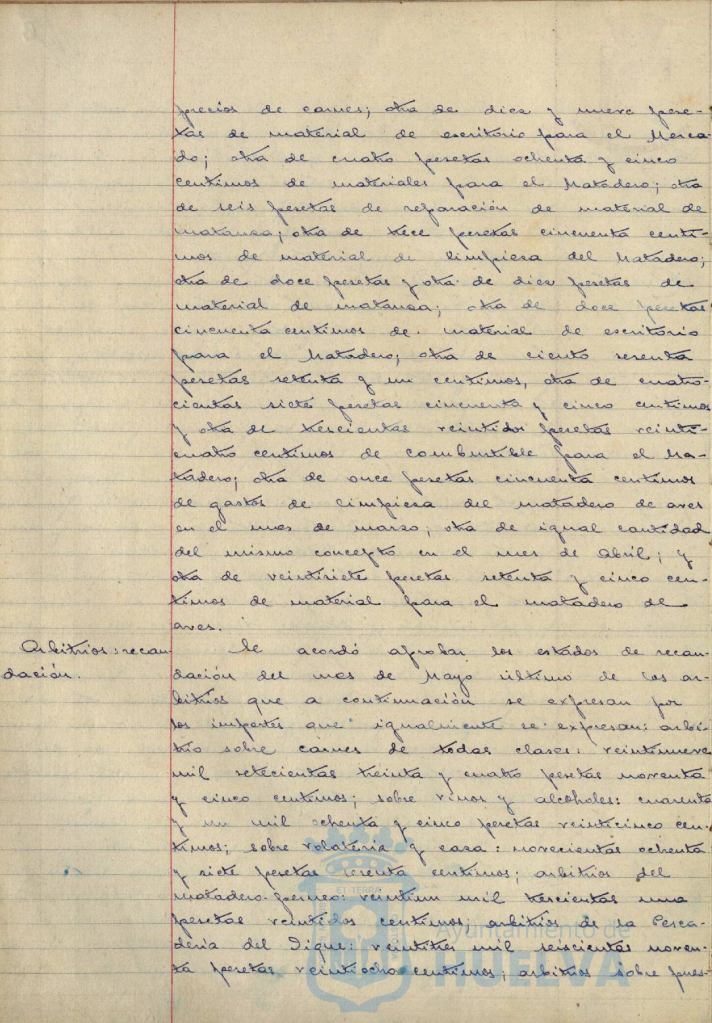 precios de carnes; otra de diez y nueve pese-
tas de material de escritorio para el Merca-
do; otra de cuatro pesetas ochenta y cinco
centimos de materiales para el Matadero; otra
de seis pesetas de reparación de material de
matanza; otra de trece pesetas cincuenta centi-
mos de material de limpieza del Matadero;
otra de doce pesetas y otra de diez pesetas de
material de matanza; otra de doce pesetas
cincuenta centimos de material de escritorio
para el Matadero; otra de ciento sesenta
pesetas setenta y un centimos, otra de cuatro-
cientas siete pesetas cincuenta y cinco centimos
y otra de trescientas veintidos pesetas veinti-
cuatro centimos de combustible para el Ma-
tadero; otra de once pesetas cincuenta centimos
de gastos de limpieza del matadero de aves
en el mes de marzo; otra de igual cantidad
del mismo concepto en el mes de Abril; y
otra de veintisiete pesetas setenta y cinco cen-
timos de material para el matadero de
aves.
Arbitrios: recau-
dación.
Se acordó aprobar los estados de recau-
dación del mes de Mayo último de los ar-
bitrios que a continuación se expresan por
los importes que igualmente se expresan: arbi-
trio sobre carnes de todas clases: veintinueve
mil setecientas treinta y cuatro pesetas noventa
y cinco centimos; sobre vinos y alcoholes: cuarenta
y un mil ochenta y cinco pesetas veinticinco cen-
timos; sobre volateria y caza: novecientas ochenta
y siete pesetas sesenta centimos; arbitrios del
matadero permeo: veintiun mil trescientas una
pesetas veintidos centimos; arbitrios de la Pesca-
deria del Dique: veintitres mil seiscientas noven-
ta pesetas veintiocho centimos; arbitrios sobre pues-
ET TERRÆ
Ayuntamiento de
HUELVA